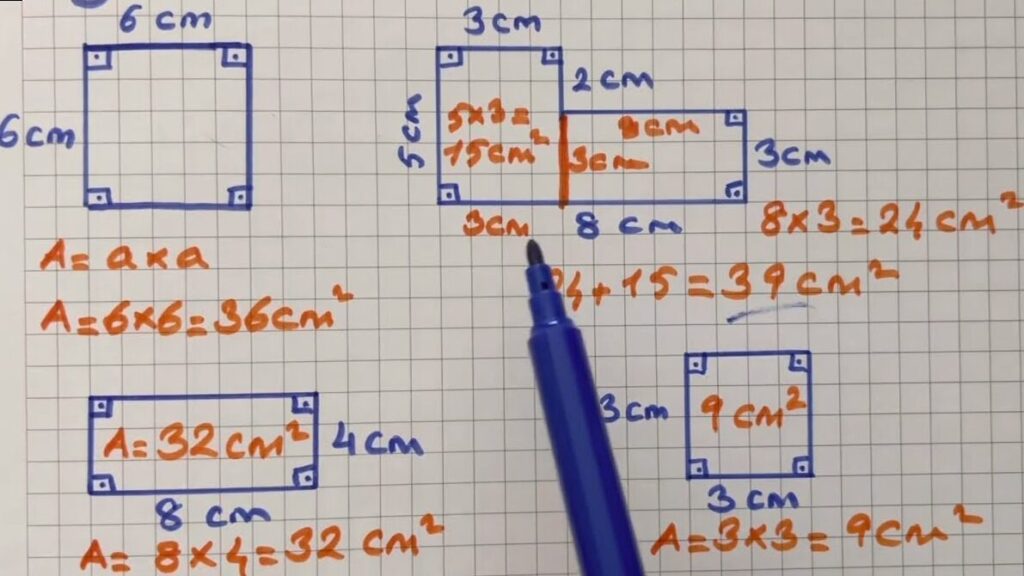 6 cm
6 cm
A= a x a
A = 6x6 = 36 cm²
3 cm
2 cm
5 cm
5x3 =
15 cm²
8 cm
3cm
3cm
3cm
8 cm
8x3 = 24 cm²
24 + 15 = 39 cm²
A= 32 cm²
4 cm
8 cm
A= 8 x 4 = 32 cm²
3 cm
9 cm²
3 cm
A=3x3= 9cm²